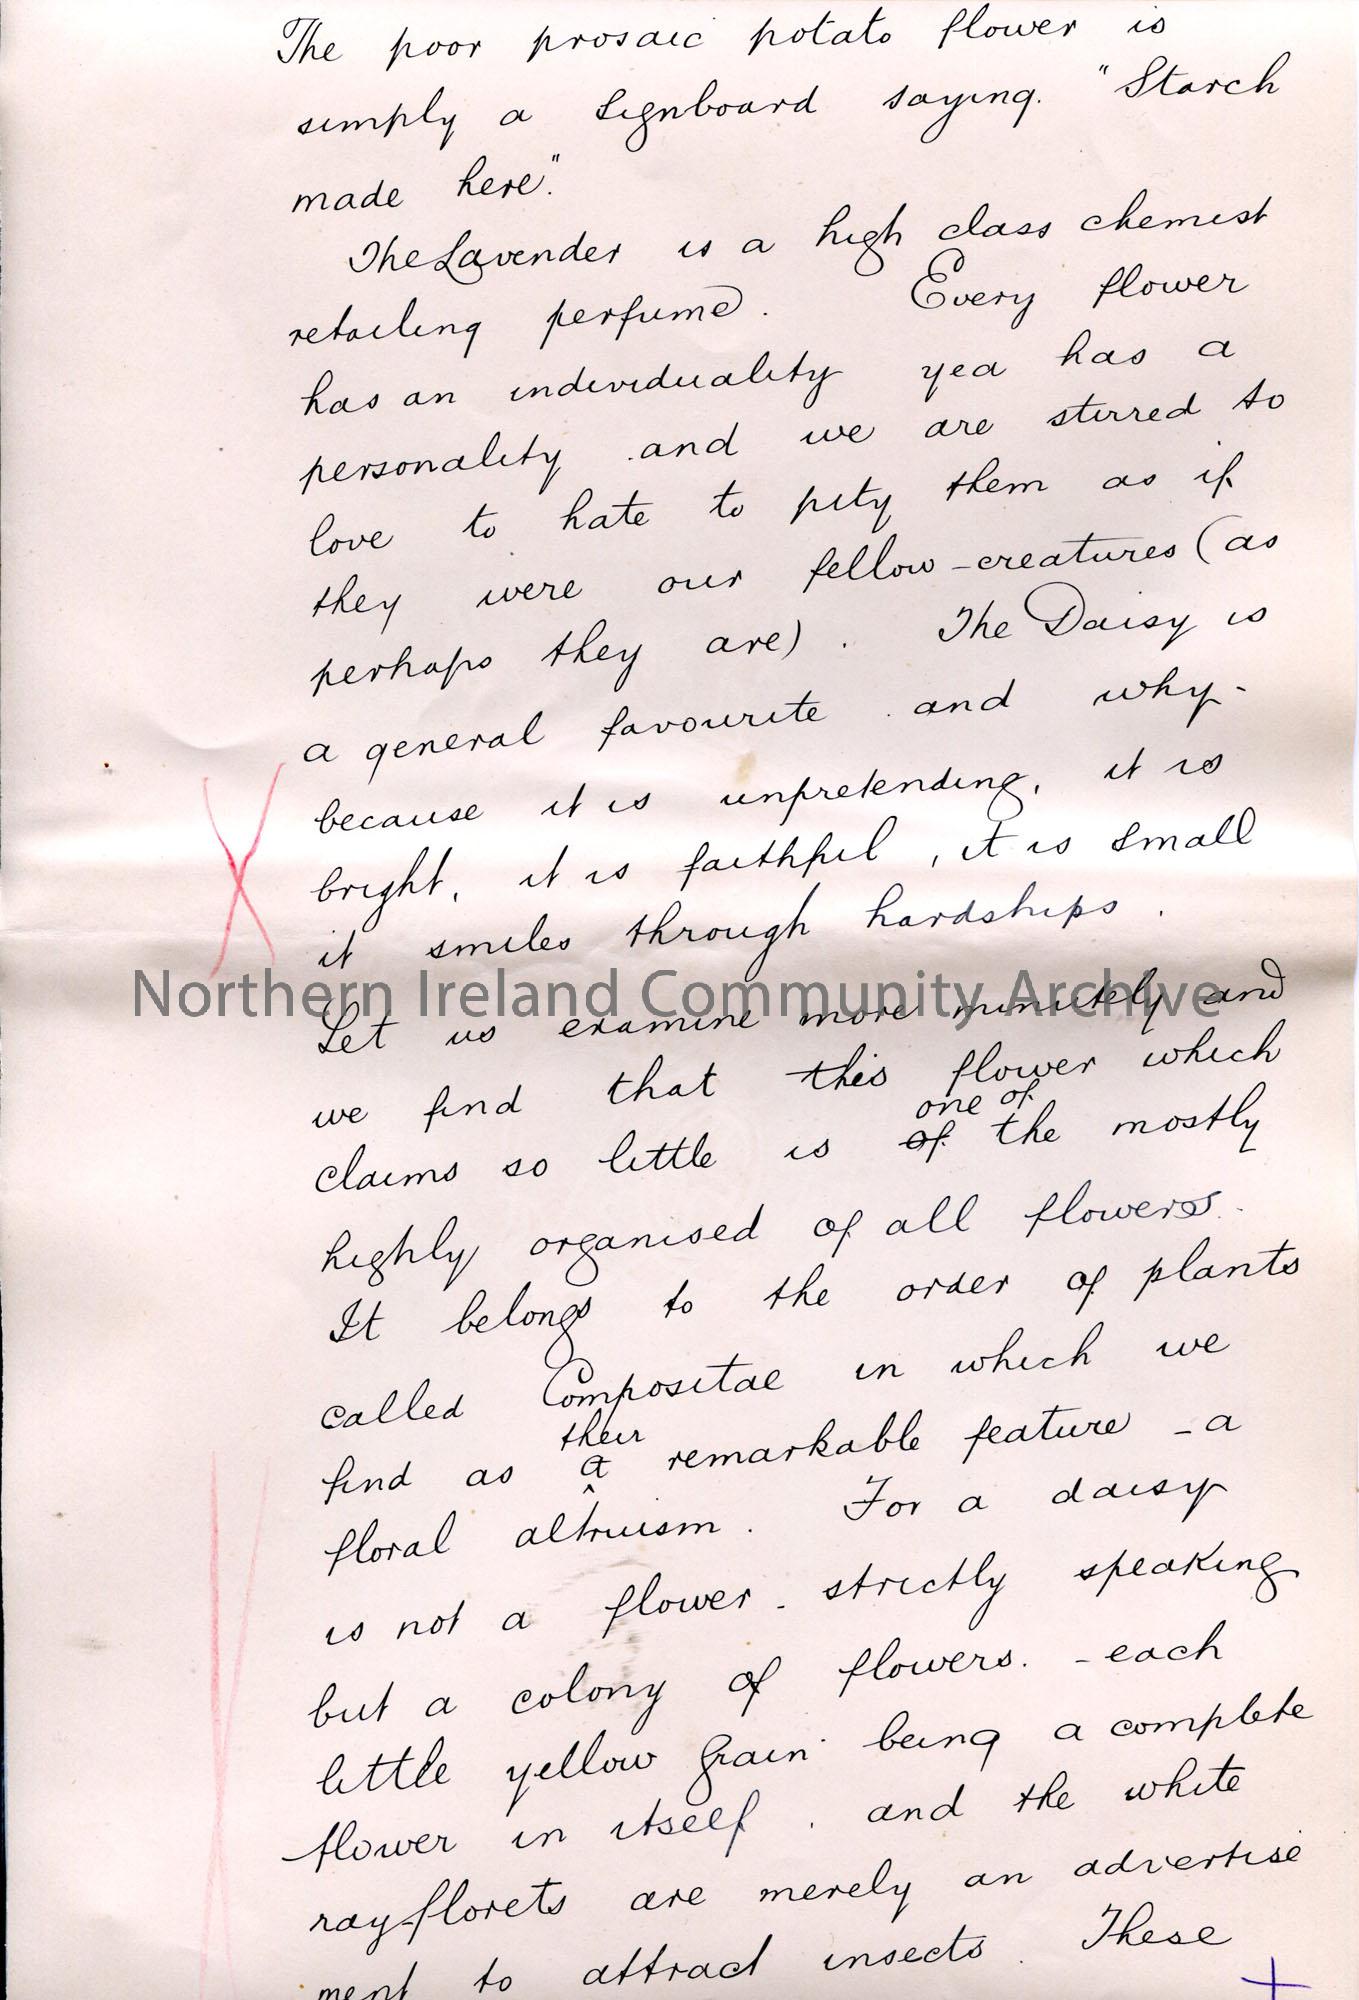 The poor prosaic potato flower is
simply a signboard saying. "Starch
made here".
The Lavender is a high class chemist
retailing perfume. Every flower
has an individuality yea has a
personality and we are stirred to
love to hate to pity them as if
they were our fellow-creatures (as
perhaps they are). The Daisy is
a general favourite and why-
because it is unpretending, it is
bright, it is faithful, it is small
it smiles through hardships.
Northern Ireland Community Archive
Let us examine more minutely and
we find that this flower which
one of
claims so little is of the mostly
highly organised of all flowers.
It belongs to the order of plants
called Compositae in which we
their
find as a remarkable feature - a
floral altruism. For a daisy
is not a flower - strictly speaking
but a colony of flowers. - each
little yellow grain being a complete
flower in itself, and the white
ray-florets are merely an advertise
ment to attract insects. These